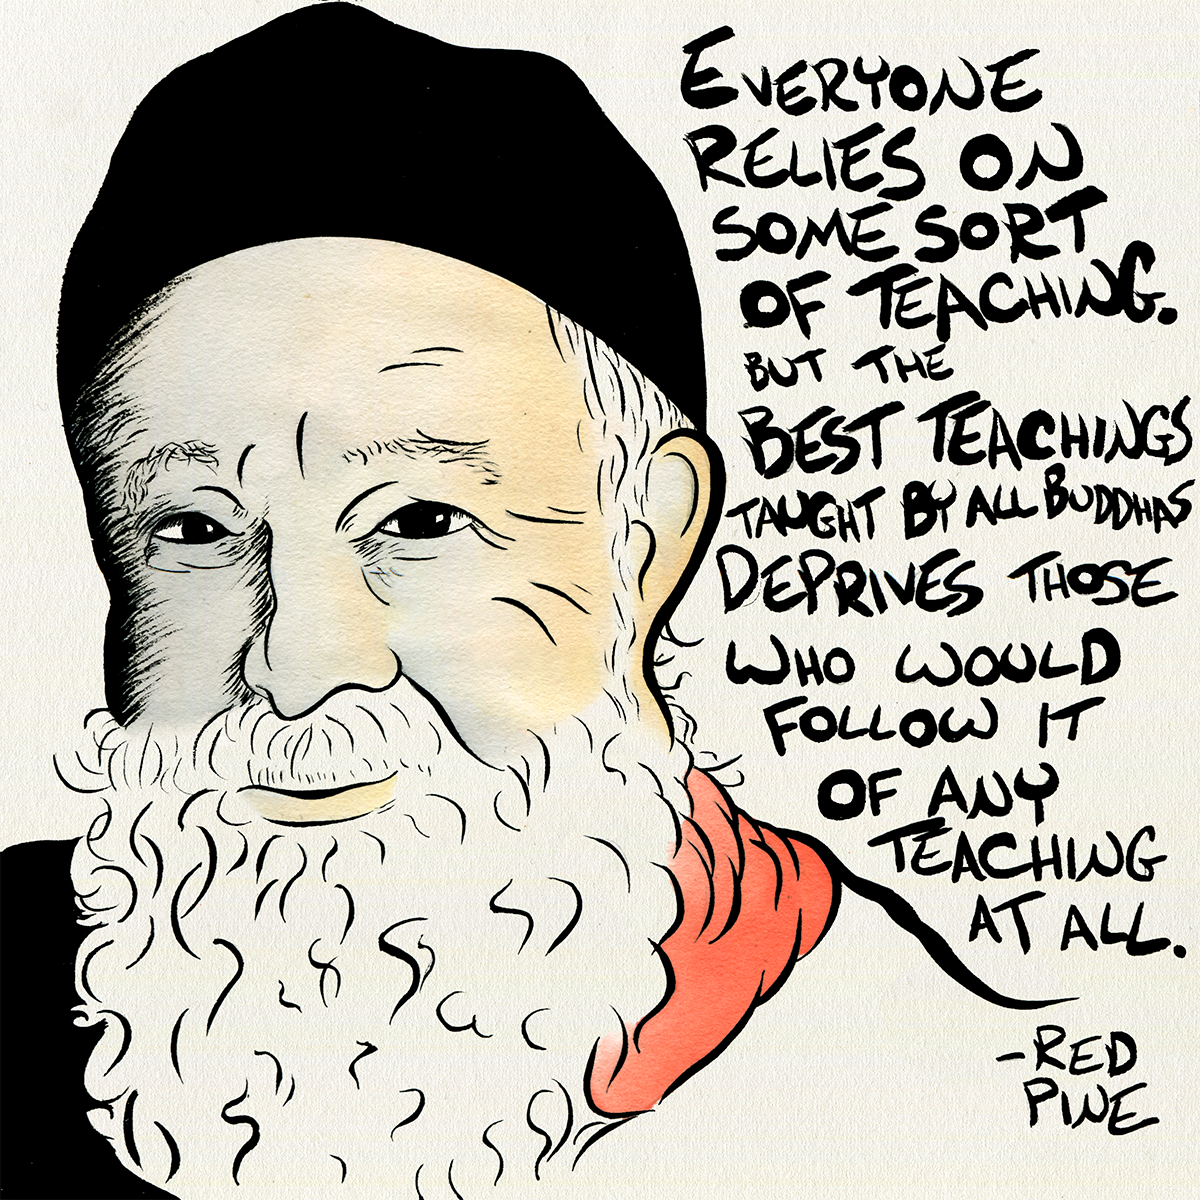 EVERYONE
RELIES ON
SOME SORT
OF TEACHING.
BUT THE
BEST TEACHINGS
TAUGHT BY ALL BUDDHAS
DEPRIVES THOSE
WHO WOULD
FOLLOW IT
OF ANY
TEACHING
AT ALL.
-RED
PINE